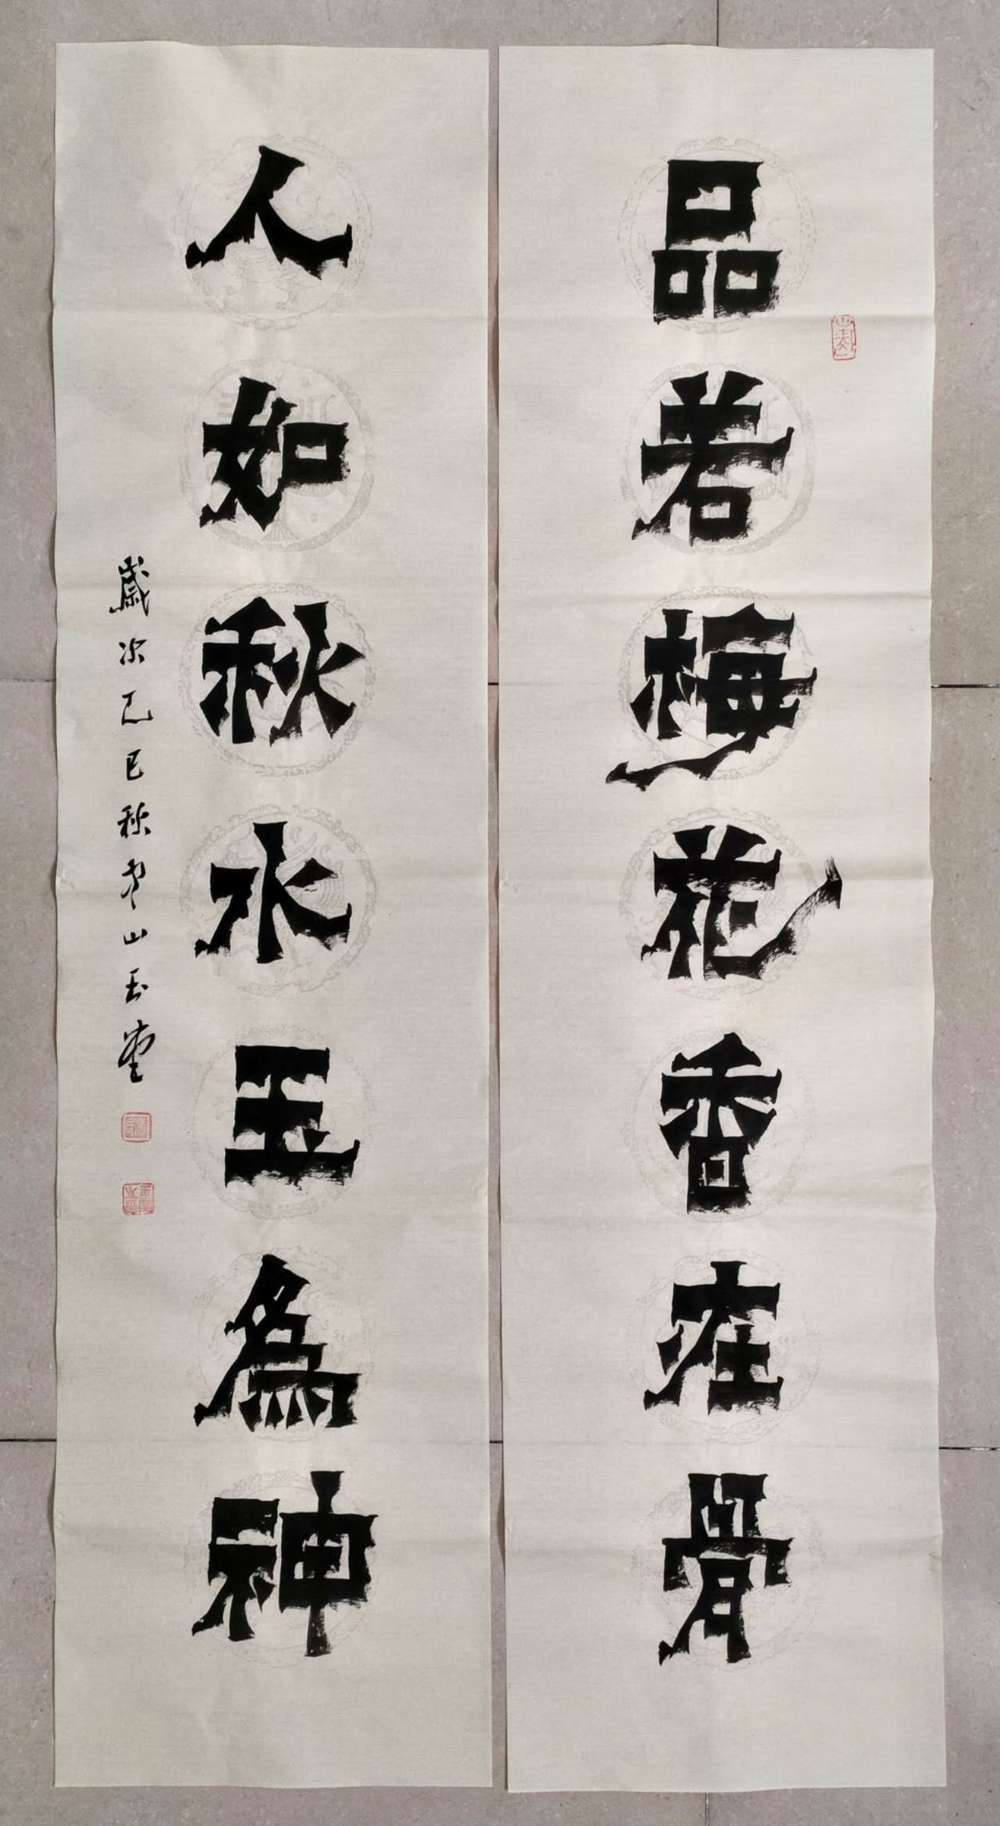 品若梅花香在骨
人如秋水玉为神
歲次乙巳秋老山玉堂